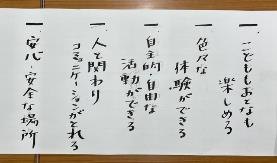 一 こどももおとなも
楽しめる
一 色々な
体験ができる
一 自主的・自由な
活動ができる
一 人と関わり
コミュニケーションがとれる
一 安心・安全な場所